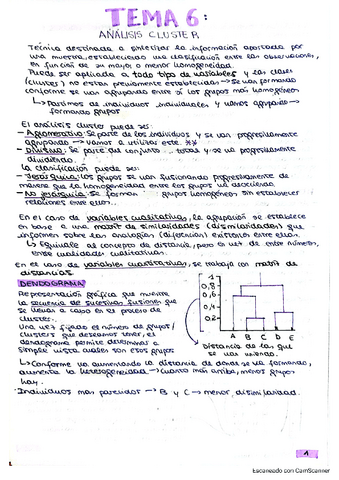 TEMA 6:
ANÁLISIS CLUSTER
Técnica destinada a sintetizar la información aportada por
una muestra, estableciendo una clasificación entre las observaciones,
en función de su mayor o menor homogeneidad.
Puede ser aplicada a todo tipo de variables y las clases
(clusters) no están previamente establecidas → Se van formando
conforme se van agrupando entre sí los grupos más homogéneos
↳ Partimos de individuos individuales y vamos agrupando →
formando grupos
El análisis cluster puede ser:
- Aglomerativo: Se parte de los individuos y se van progresivamente
agrupando → Vamos a utilizar este **
- Divisivo: Se parte del conjunto total y se va progresivamente
dividiendo.
La clasificación puede ser:
- Jerárquica: Los grupos se van fusionando progresivamente de
manera que la homogeneidad entre los grupos va decreciendo.
- No jerárquica: Se forman grupos homogéneos sin establecer
relaciones entre ellos.
En el caso de variables cualitativas, la agrupación se establece
en base a una matriz de similaridades (disimilaridades) que
informen sobre las analogías (diferencias) existentes entre ellas.
↳ Equivale al concepto de distancia, pero en vez de entre números,
entre cualidades cualitativas.
En el caso de variables cuantitativas, se trabaja con matriz de
distancias.
DENDOGRAMA
Representación gráfica que muestra
la secuencia de sucesivas fusiones que
se llevan a cabo en el proceso de
cluster.
Una vez fijado el número de grupos/
clusters que deseamos tener, el
dendograma permite determinar a
simple vista cuáles son esos grupos
1
0,8
0,6
0,4
0,2
A B C D E
Distancia de las que
se van uniendo.
↳ Conforme va aumentando la distancia de donde se va formando,
aumenta la heterogeneidad → Cuanto más arriba, menos grupos
hay.
Individuos más parecidos → B y C → menor disimilaridad.
1
Escaneado con CamScanner